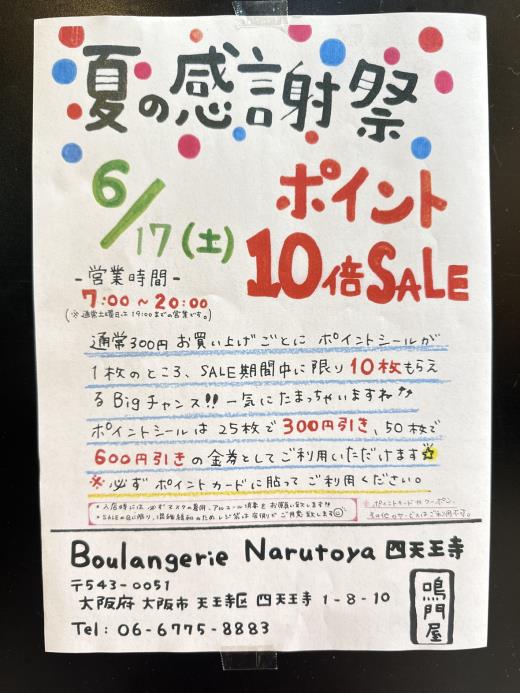 夏の感謝祭
6/17(土)
ポイント
10倍SALE
-営業時間-
7:00~20:00
(※通常土曜日は19:00までの営業です。)
通常300円お買い上げごとに ポイントシールが
1枚のところ、SALE期間中に限り10枚もらえ
るBigチャンス!!一気にたまっちゃいますね
ポイントシールは25枚で300円引き、50枚で
600円引きの金券としてご利用いただけます☆
※必ずポイントカードに貼ってご利用ください。
・入店時には必ずマスクの着用、アルコール消毒をお願い致します!!
・SALEの日に限り、混雑緩和のためレジ袋は有償でご用意致します
※ポイントカードやクーポン、
その他のサービスはご利用不可。
Boulangerie Narutoya 四天王寺
〒543-0051
大阪府 大阪市 天王寺区 四天王寺 1-8-10
Tel: 06-6775-8883
鳴門屋